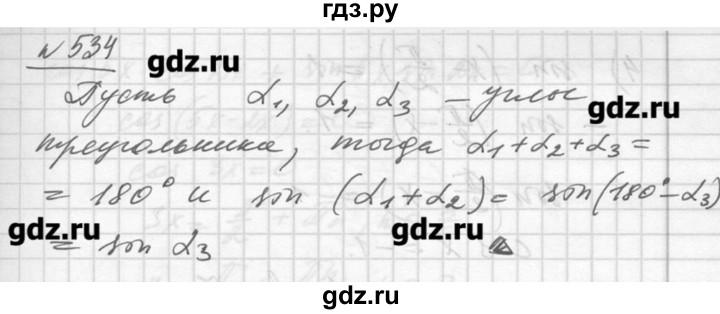 гдз.ру
№ 534
gdz.ru
Пусть α1, α2, α3 – углы
gdz.ru
треугольника, тогда α1+α2+α3=
= 180° и sin (α1+α2)= sin(180°-α3)
gdz.ru gdz.ru
= sin α3
gdz.ru